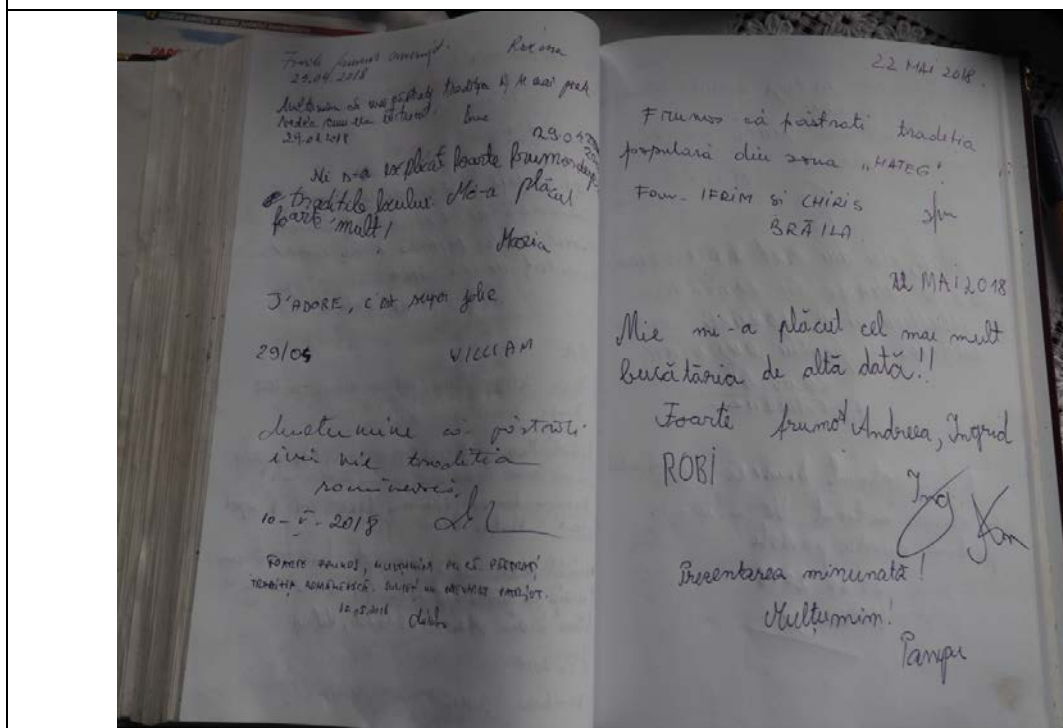 Foarte frumos amenajat. Roxana
29.04.2018
Mulțumim că mai păstrați tradiția și se mai poate
vedea
29.04.2018
29.04
Ni s-a explicat foarte frumos despre
tradițile locului. Mi-a plăcut
foarte mult!
Maria
J'ADORE, c'est super jolie
29/04 WILLIAM
Mulțumire că păstrați
vie tradiția
românească,
10-V-2018
FOARTE FRUMOS, MULȚUMIM PT. CĂ PĂSTRAȚI
TRADIȚIA ROMÂNEASCĂ. SUNTEȚI UN PATRIOT.
12.05.2018
22 MAI 2018.
Frumos că păstrati traditia
populară din zona "HATEG".
Fam. IFRIM SI CHIRIS
BRĂILA
22 MAI 2018
Mie mi-a plăcut cel mai mult
bucătăria de altă dată!!
Foarte frumos Andreea, Ingrid
ROBI
Ing
Prezentarea minunată!
Mulțumim!
Pampu